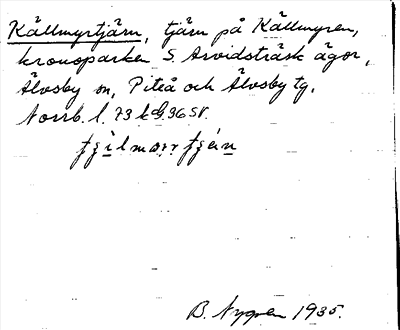 Källmyrtjärn, tjärn på Källmyren,
kronoparken S. Arvidsträsk ägor,
Älvsby sn, Piteå och Älvsby tg.
Norrb. l. 73 kbl 36 SV.
B. Nygren 1935.